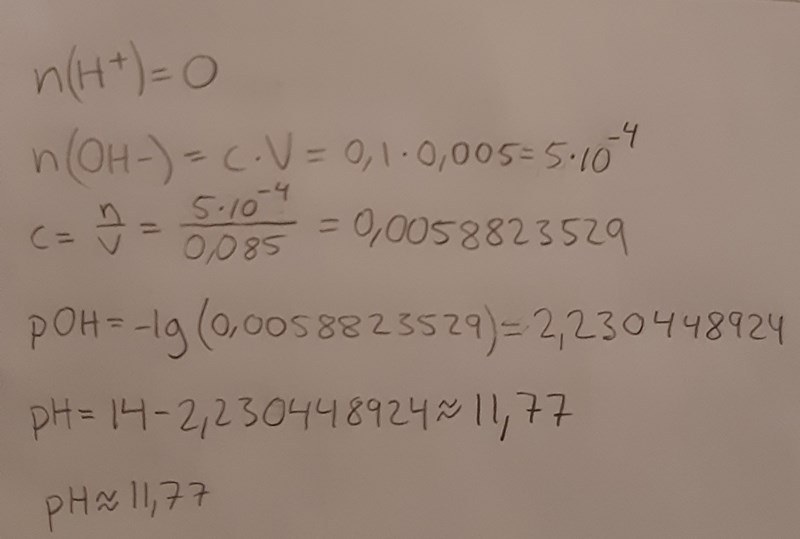 n(H⁺)=0
n(OH-) = c·V = 0,1·0,005=5·10⁻⁴
c= n/V = 5·10⁻⁴/0,085 = 0,0058823529
pOH=-lg(0,0058823529)=2,230448924
pH=14-2,230448924≈11,77
pH≈11,77